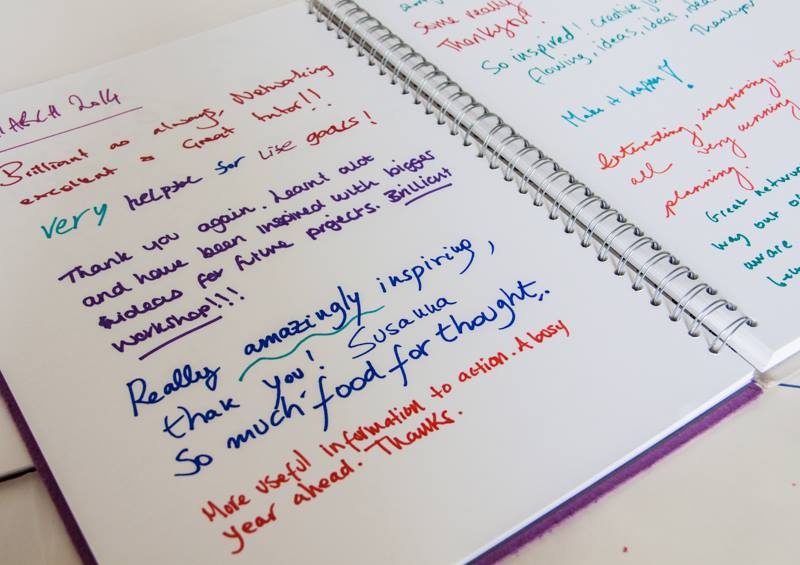 MARCH 2014
Brilliant as always, Networking
excellent & Great tutor!!
very helpful for Life goals!
Thank you again. Learnt alot
and have been inspired with bigger
ideas for future projects. Brilliant
workshop!!!
Really amazingly inspiring,
thak you! Susanna
So much food for thought,.
More useful information to action. A busy
year ahead. Thanks.
Some really
Thankyou
So inspired! Creative
flowing, ideas, ideas, ideas
Thankyou
Make it happen!
Interesting, inspiring, but
all very
planning.
Great network
way out of
aware